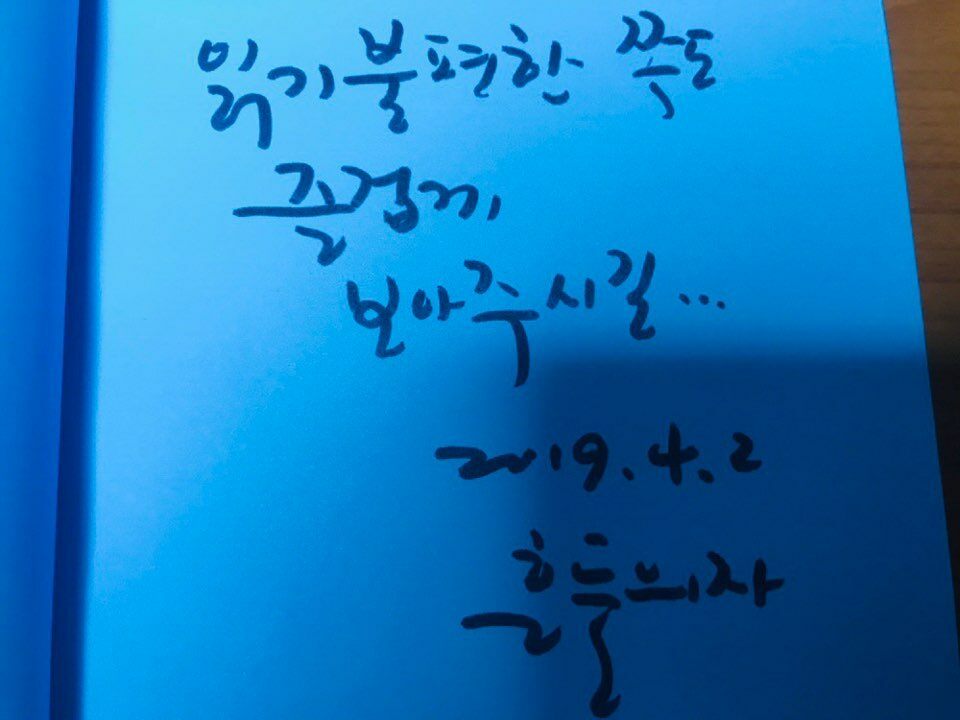 읽기 불편한 쪽도
즐겁게
보아주시길...
2019.4.2